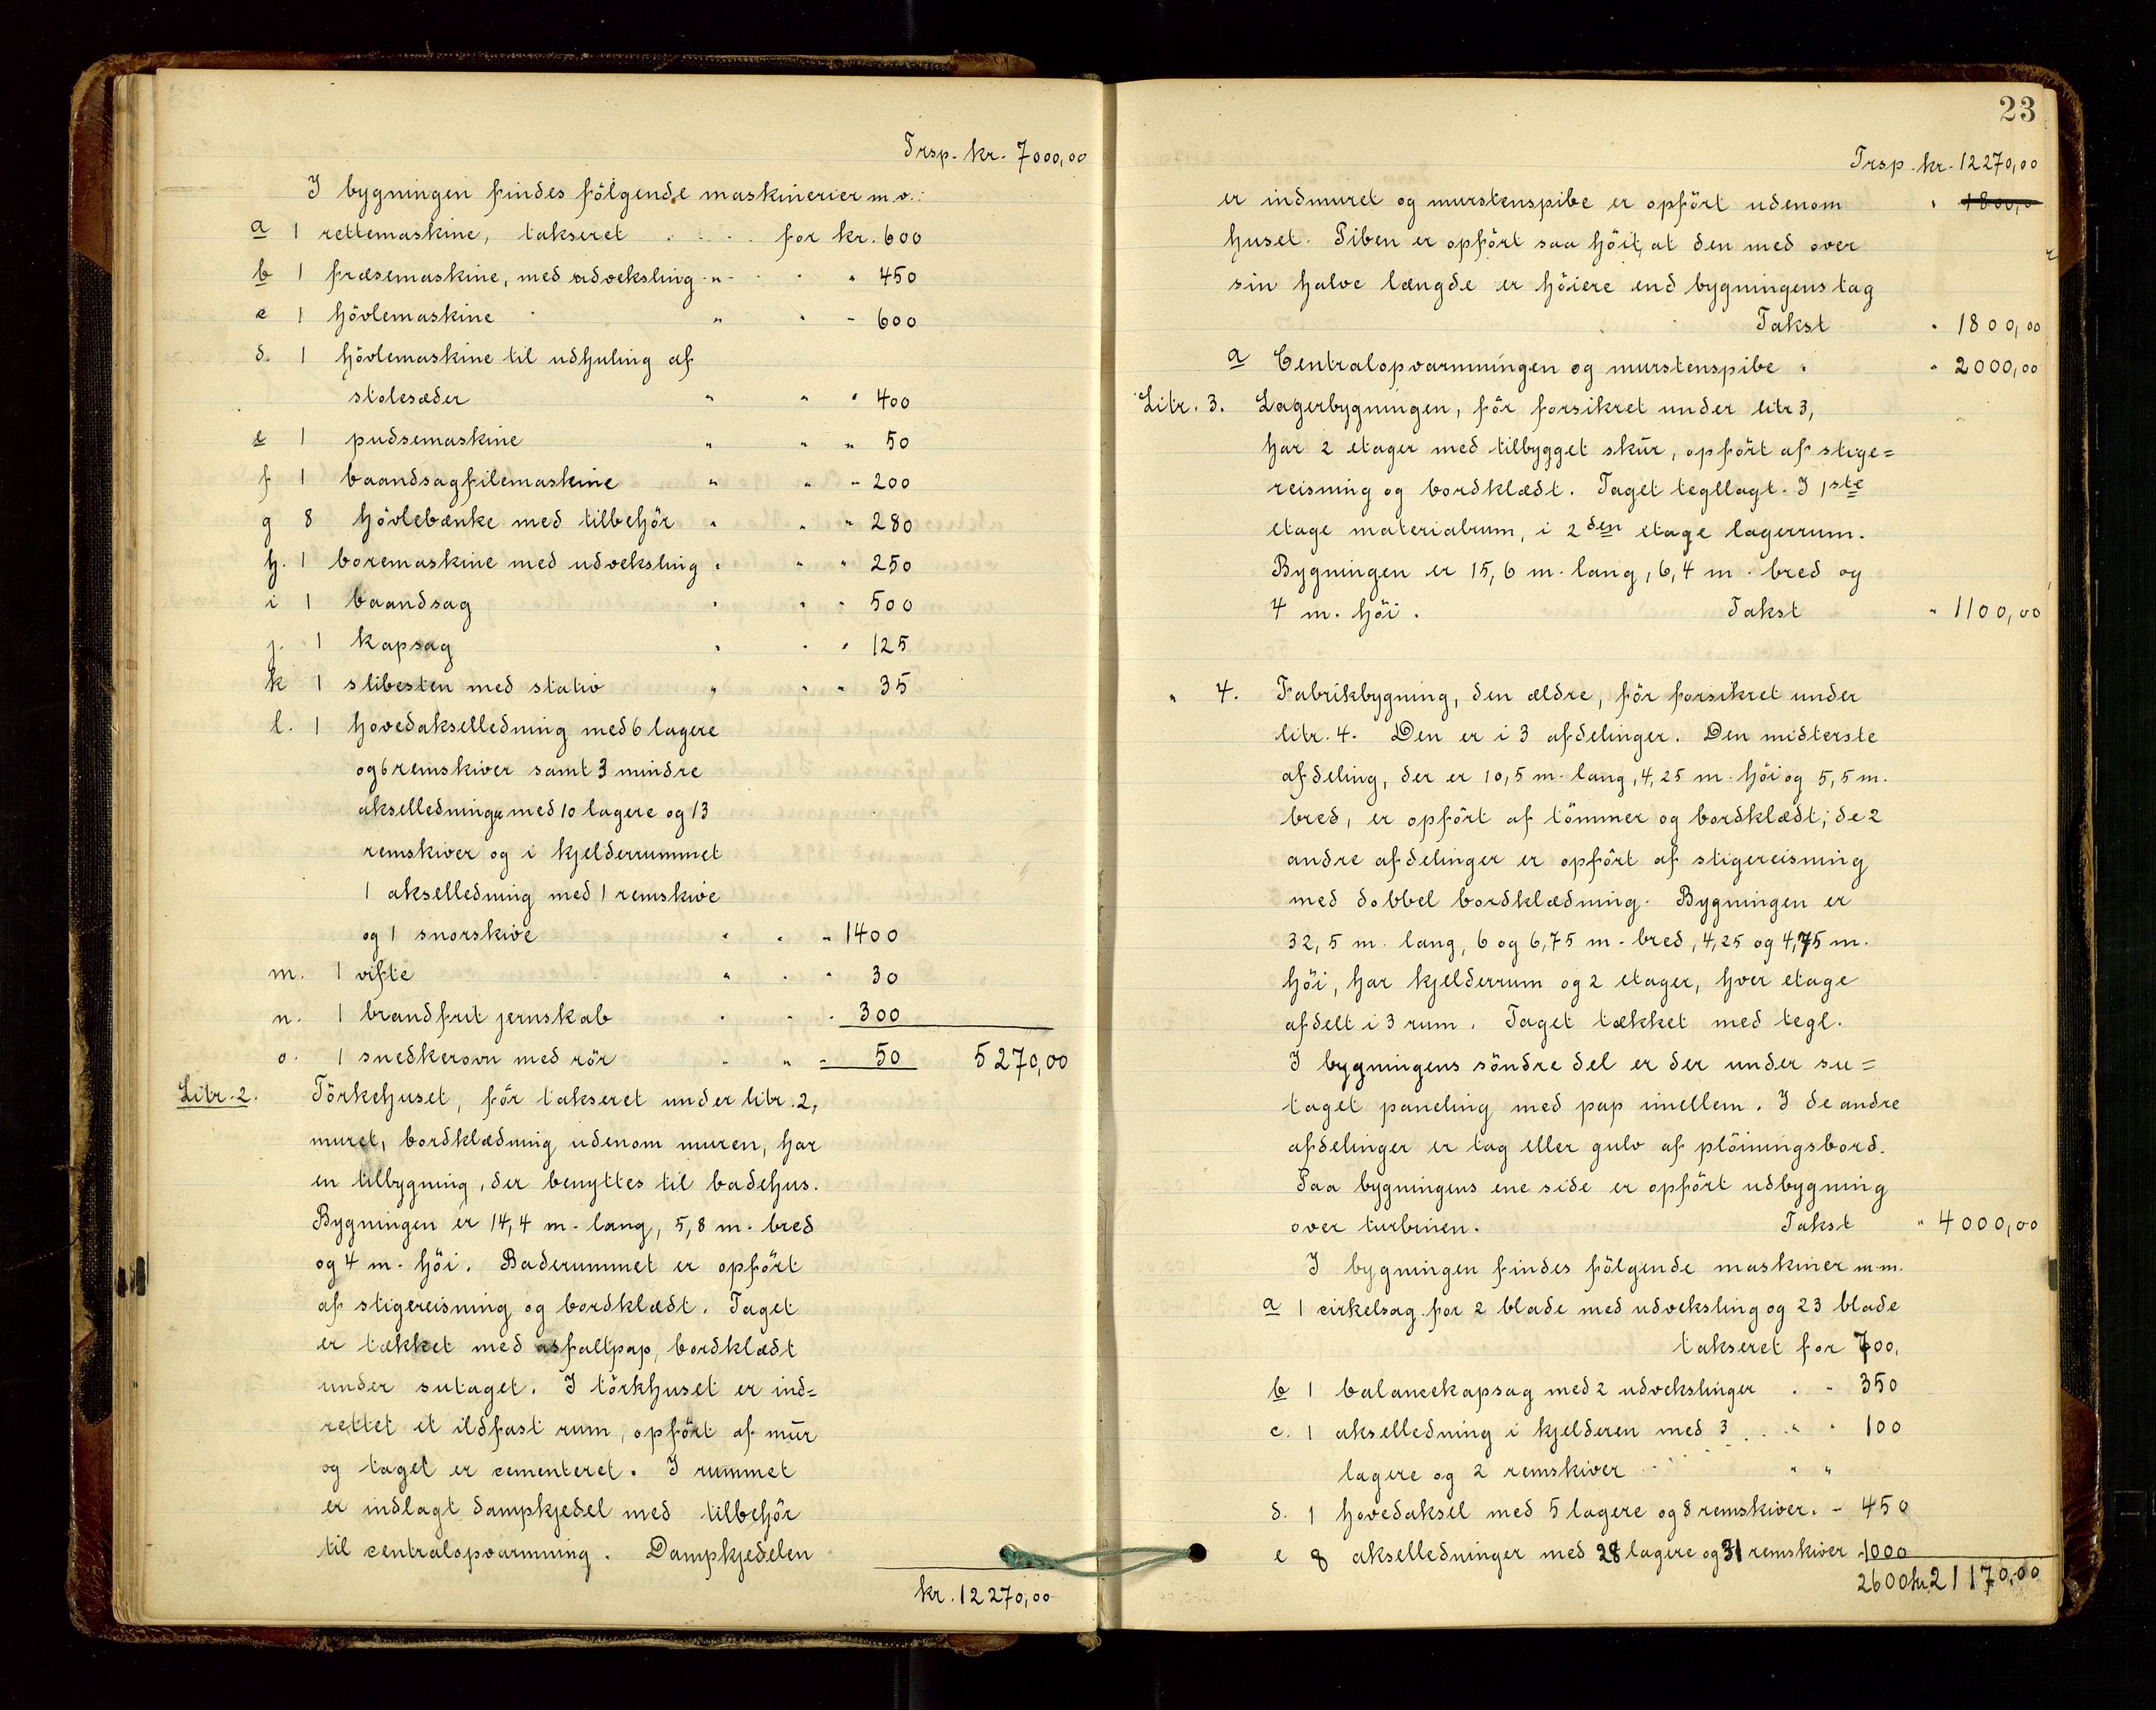 Trsp. kr. 7000,00
I bygningen findes fölgende maskinerier m.v.:
a 1 rettemaskine, takseret for kr. 600
b 1 fræsemaskine, med udveksling " " 450
c 1 hövlemaskine " " - 600
d. 1 hövlemaskine til udhuling af
stolesæder " " " 400
e 1 pudsemaskine " " " 50
f 1 baandsagfilemaskine " " " 200
g 8 hövlebænke med tilbehör " " " 280
h. 1 boremaskine med udveksling " " " 250
i 1 baandsag " " " 500
j. 1 kapsag " " " 125
k 1 slibesten med stativ " " " 35
l. 1 hovedakselledning med 6 lagere
og 6 remskiver samt 3 mindre
akselledninge med 10 lagere og 13
remskiver og i kjelderrummet
1 akselledning med 1 remskive
og 1 snorskive " " " 1400
m. 1 vifte " " " 30
n. 1 brandfrit jernskab " " " 300
o. 1 snedkerovn med rör " " " 50 5270,00
Litr. 2. Törkehuset, för takseret under litr. 2,
muret, bordklædning udenom muren, har
en tilbygning, der benyttes til badehus.
Bygningen er 14,4 m. lang, 5,8 m. bred
og 4 m. höi. Baderummet er opfört
af stigereisning og bordklædt. Taget
er tækket med asfaltpap, bordklædt
under sutaget. I törkhuset er ind=
rettet et ildfast rum, opfört af mur
og taget er cementeret. I rummet
er indlagt dampkjedel med tilbehör
til centralopvarmning. Dampkjedelen
kr. 12270,00
23
Trsp. kr. 12270,00
er indmuret og murstenspibe er opfört udenom " 1800,0
huset. Piben er opfört saa höit, at den med over
sin halve længde er höiere end bygningens tag
Takst " 1800,00
a Centralopvarmningen og murstenspibe " " 2000,00
Litr. 3. Lagerbygningen, för forsikret under litr 3,
har 2 etager med tilbygget skur, opfört af stige=
reisning og bordklædt. Taget tegllagt. I 1ste
etage materialrum, i 2den etage lagerrum.
Bygningen er 15,6 m. lang, 6,4 m. bred og
4 m. höi. Takst " 1100,00
" 4. Fabrikbygning, den ældre, för forsikret under
litr. 4. Den er i 3 afdelinger. Den midterste
afdeling, der er 10,5 m. lang, 4,25 m. höi og 5,5 m.
bred, er opfört af tömmer og bordklædt; de 2
andre afdelinger er opfört af stigereisning
med dobbel bordklædning. Bygningen er
32,5 m. lang, 6 og 6,75 m. bred, 4,25 og 4,75 m.
höi, har kjelderrum og 2 etager, hver etage
afdelt i 3 rum. Taget tækket med tegl.
I bygningens söndre del er der under su=
taget paneling med pap imellem. I de andre
afdelinger er tag eller gulv af plöiningsbord.
Paa bygningens ene side er opfört udbygning
over turbinen. Takst " 4000,00
I bygningen findes fölgende maskiner m.m.
a 1 cirkelsag for 2 blade med udveksling og 23 blade
takseret for 700,
b 1 balancekapsag med 2 udvekslinger . - 350
c. 1 akselledning i kjelderen med 3 " " 100
lagere og 2 remskiver " "
d. 1 hovedaksel med 5 lagere og 8 remskiver. - 450
e 8 akselledninger med 28 lagere og 31 remskiver 1000
2600 kr. 21170,00